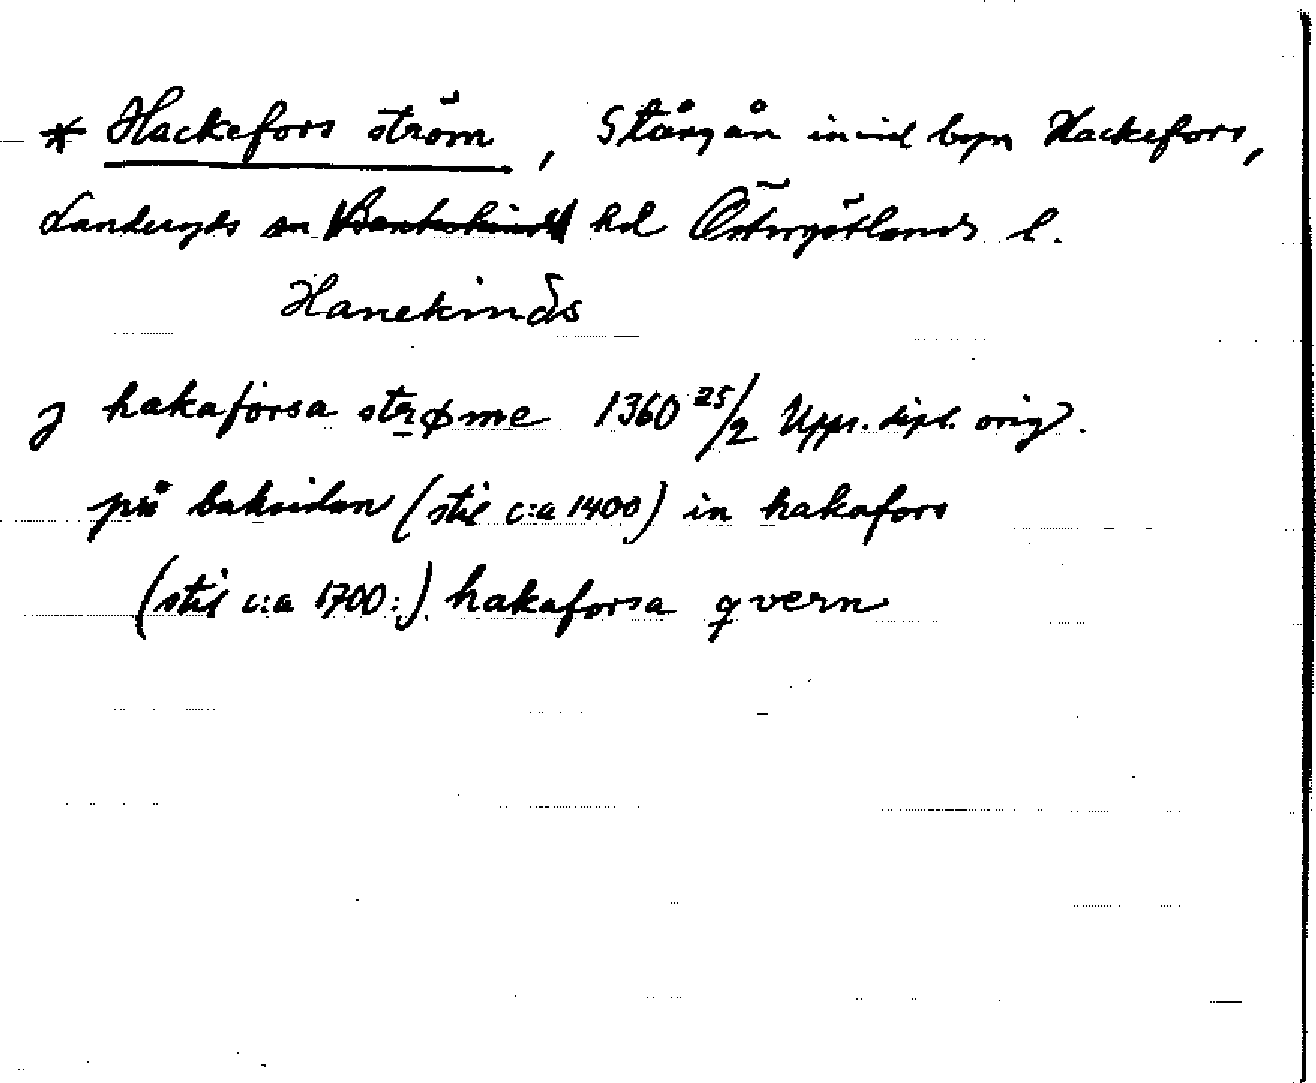 * Hackefors ström, Stångån invid byn Hackefors,
Landeryds sn Bankekinds hd Östergötlands l.
Hanekinds
j hakaforsa strøme 1360 25/2 Upps. dipl. orig.
på baksidan (stil c:a 1400) in hakafors
(stil c:a 1700:) hakaforsa qvern